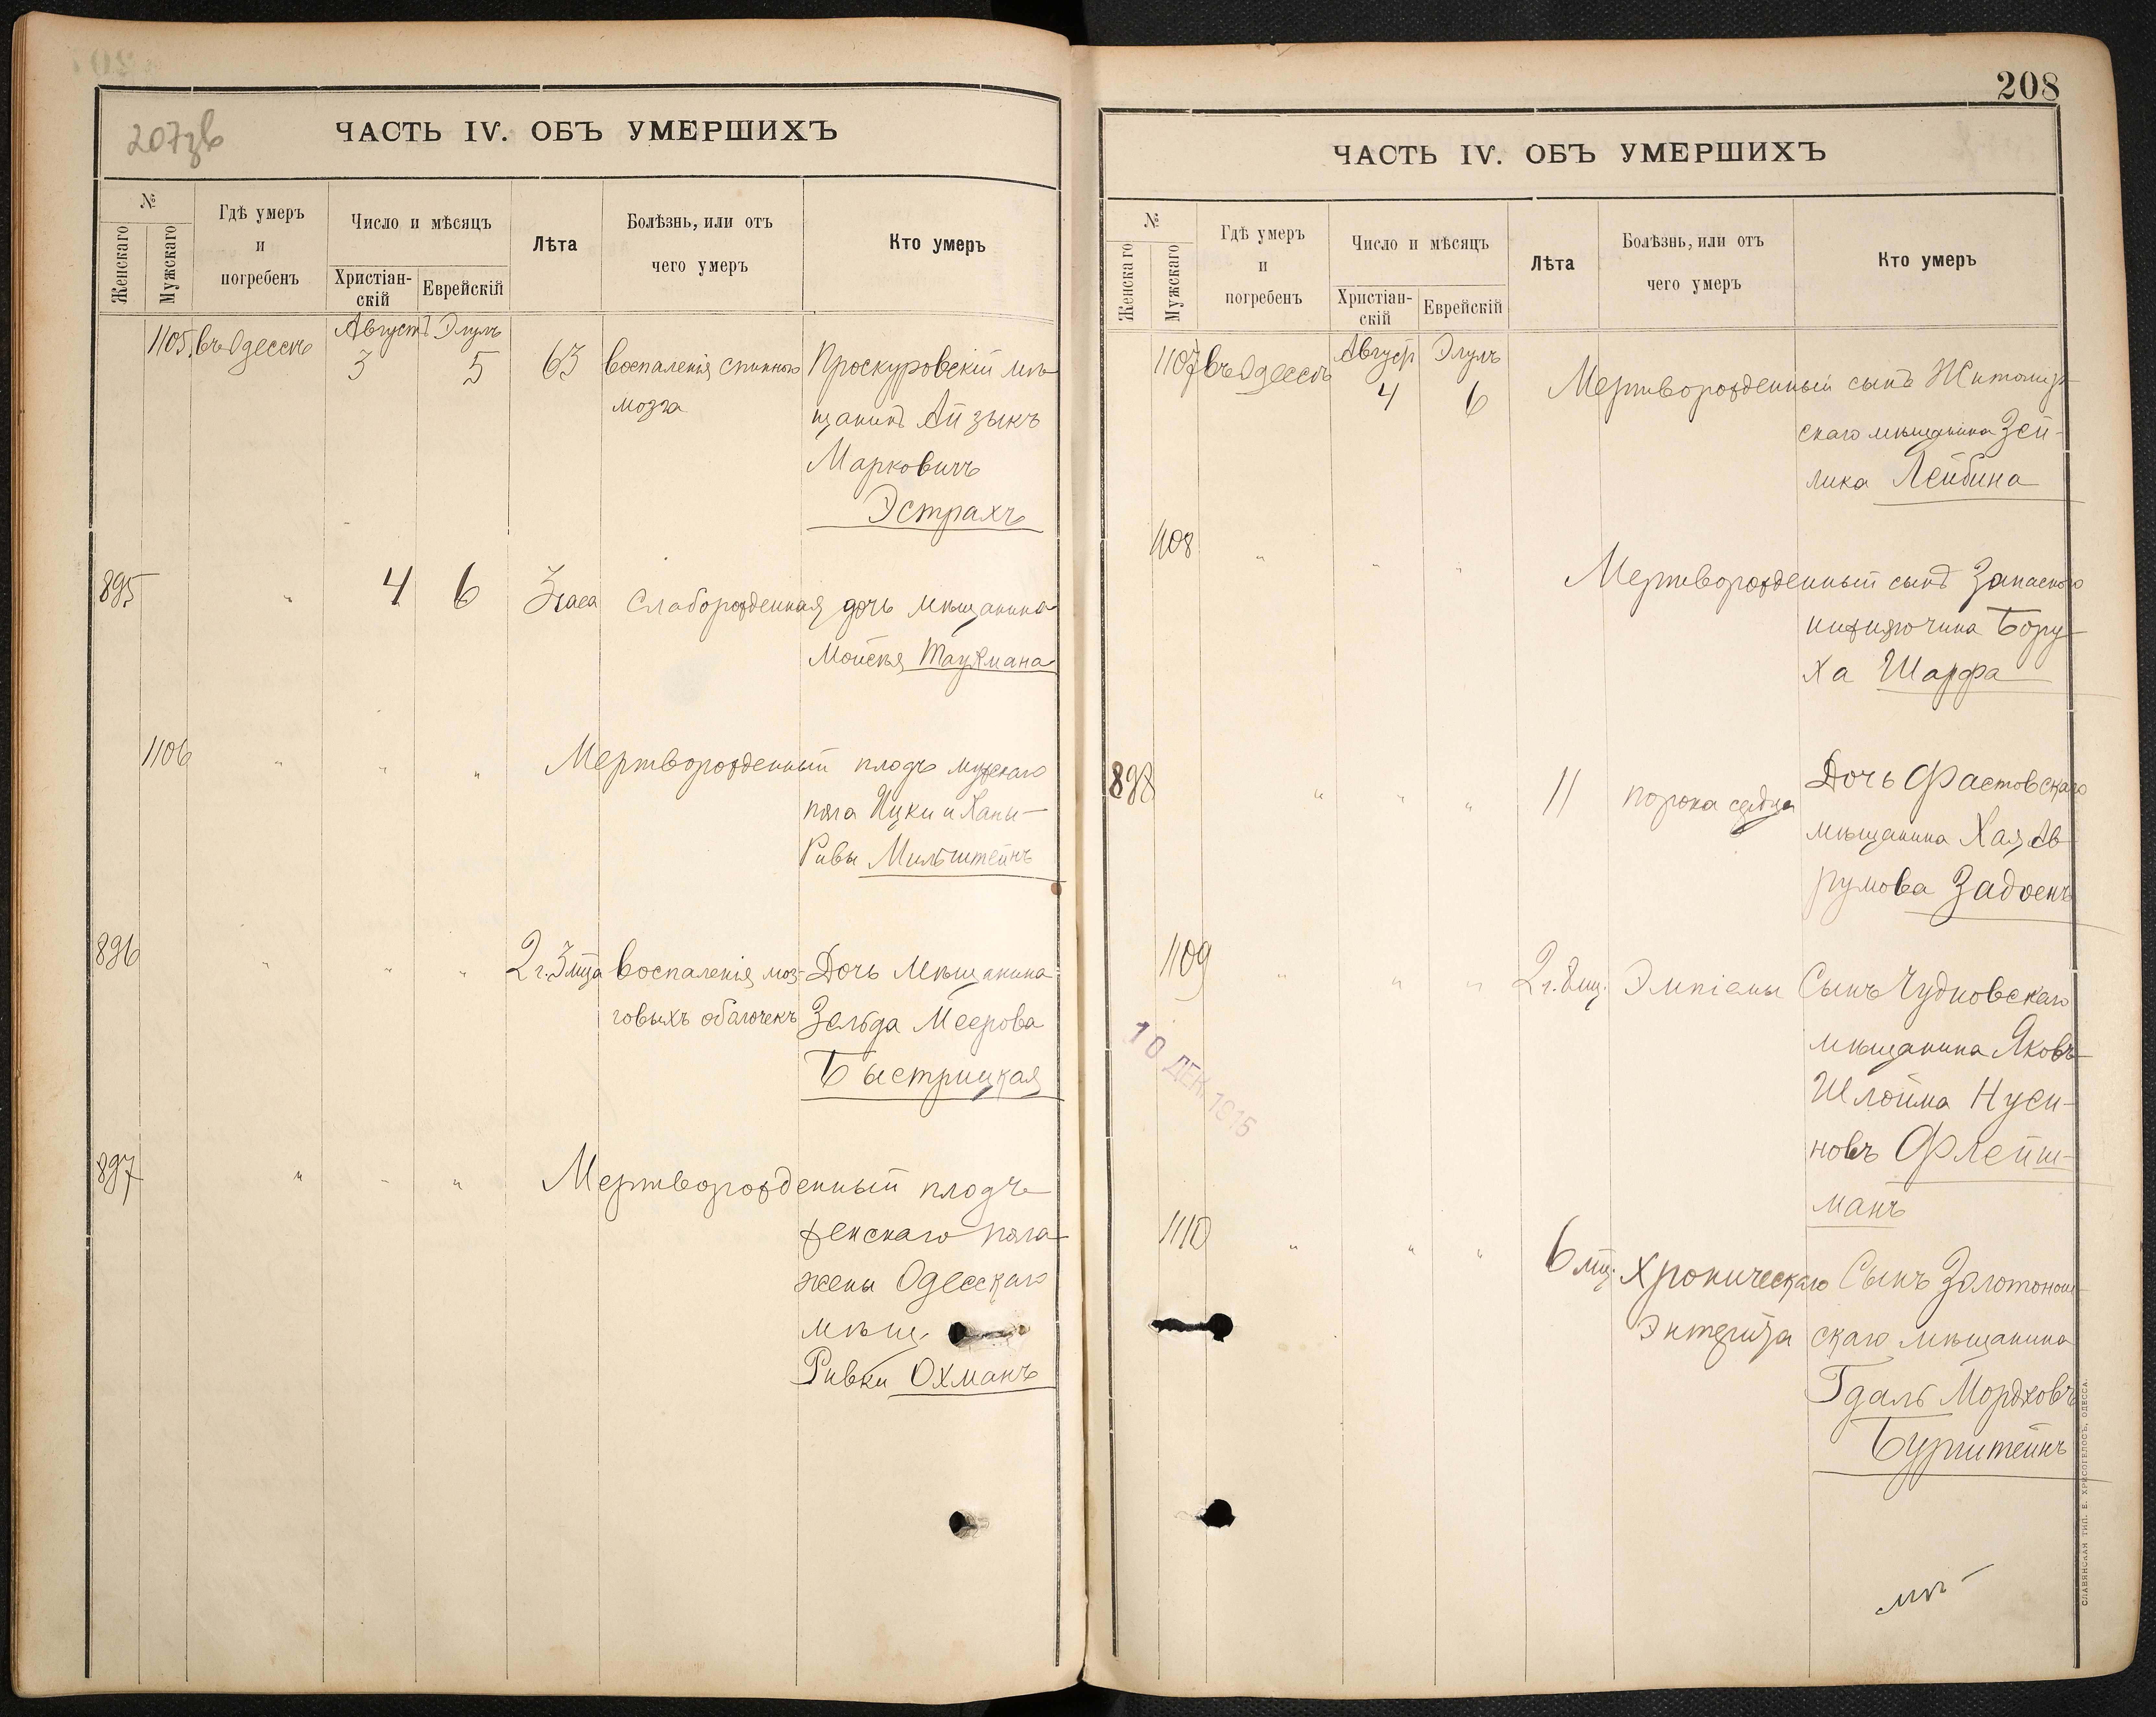 207зв
ЧАСТЬ IV. ОБЪ УМЕРШИХЪ
№
Женскаго
Мужскаго
Гдѣ умеръ
и
погребенъ
Число и мѣсяцъ
Христіан-
скій
Еврейскій
Лѣта
Болѣзнь, или отъ
чего умеръ
Кто умеръ
1105. въ Одессѣ Августъ 3 Элулъ 5 63 воспаленія спинного Проскуровскій мѣ-
мозга щанинъ Айзыкъ
Марковичъ
Эстрахъ
895 " 4 6 3 часа Слаборожденная дочь мѣщанина
Мойсея Таухмана
1106 " " " Мертворожденный плодъ мужскаго
пола Ицки и Ханы-
Ривы Мильштейнъ
896 " " " 2 г. 3 мца воспаленія моз- Дочь мѣщанина
говыхъ оболочекъ Зельда Меерова
Быстрицкая
897 " " " Мертворожденный плодъ
женскаго пола
жены Одесскаго
мѣщ.
Ривки Охманъ
208
ЧАСТЬ IV. ОБЪ УМЕРШИХЪ
№
Женскаго
Мужскаго
Гдѣ умеръ
и
погребенъ
Число и мѣсяцъ
Христіан-
скій
Еврейскій
Лѣта
Болѣзнь, или отъ
чего умеръ
Кто умеръ
1107 въ Одессѣ Август 4 Элулъ 6 Мертворожденный сынъ Житомир-
скаго мѣщанина Зей-
лика Лейбина
1108 " " " Мертворожденный сынъ Запасного
Бору-
ха Шарфа
898 " " " 11 порока сердца Дочь Фастовскаго
мѣщанина Хая Ав-
румова Задоенъ
1109 " " " 2 г. 8 мц. Эмпіемы Сынъ Чудновскаго
мѣщанина Яковъ-
Шлойма Нуси-
новъ Флейш-
манъ
10 ДЕК. 1915
1110 " " " 6 мц. Хроническаго Сынъ Золотонош-
Энтерита скаго мѣщанина
Гдаль Мордховъ
Бурштейнъ
СЛАВЯНСКАЯ ТИП. Е. ХРИСОГЕЛОСЪ, ОДЕССА.